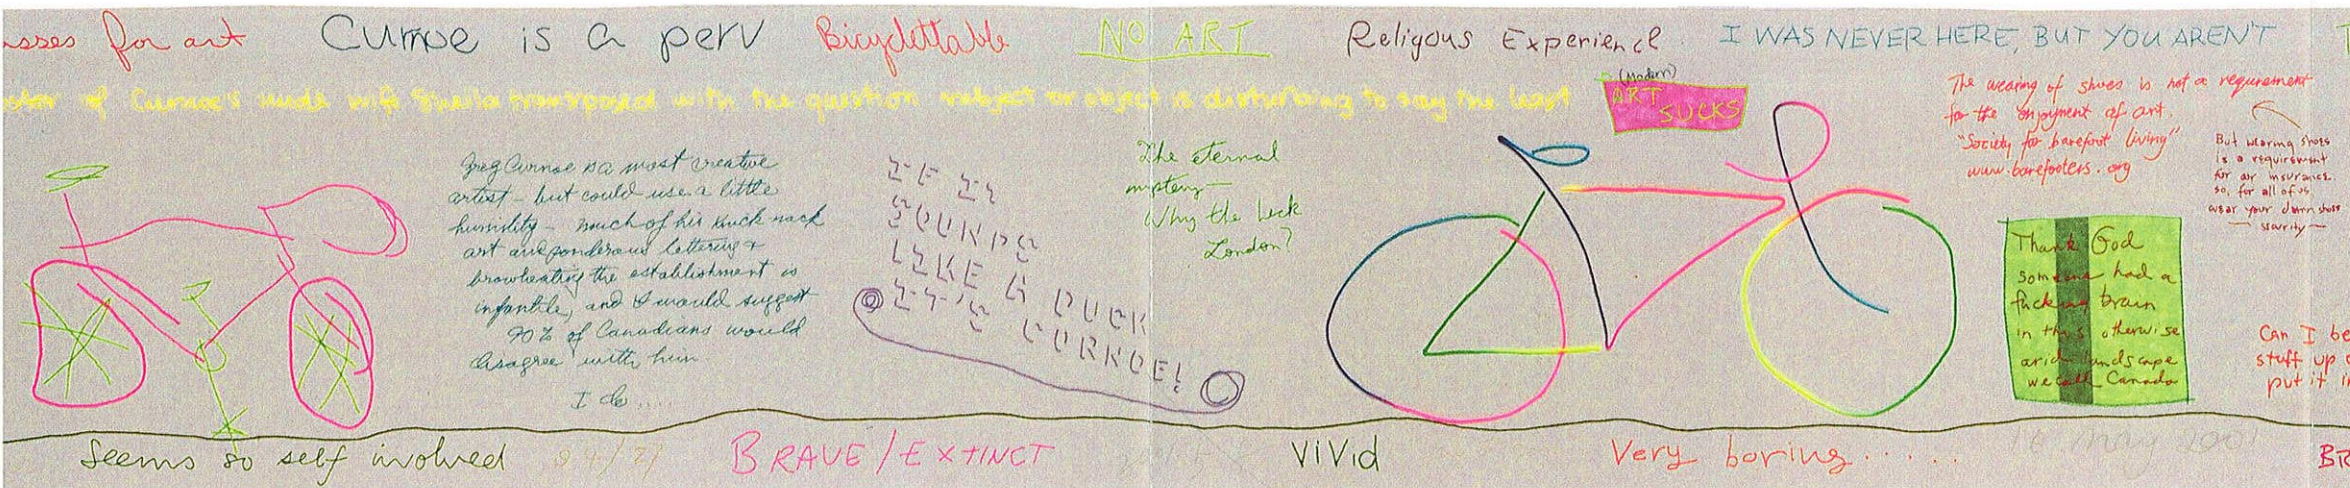 asses for art
Curnoe is a perv
Bicyclettable
NO ART
Religous Experience
I WAS NEVER HERE, BUT YOU AREN'T
of Curnoe's nude wife Sheila transposed with the question subject or object is disturbing to say the least
(Modern)
ART
SUCKS
The wearing of shoes is not a requirement
for the enjoyment of art.
"Society for barefoot living"
www.barefooters.org
But wearing shoes
is a requirement
for our insurance.
so, for all of us
wear your damn shoes
— security —
Greg Curnoe is a most creative
artist – but could use a little
humility – much of his knick nack
art and ponderous lettering +
browbeating the establishment is
infantile, and I would suggest
90% of Canadians would
disagree with him
I do ....
IF IT
SOUNDS
LIKE A DUCK
IT'S CURNOE!
The eternal
mystery –
Why the heck
London?
Thank God
someone had a
fucking brain
in this otherwise
arid landscape
we call Canada
Can I be
stuff up
put it i
Seems so self involved
BRAVE/EXTINCT
ViVid
Very boring.....
16 May 2001
BR